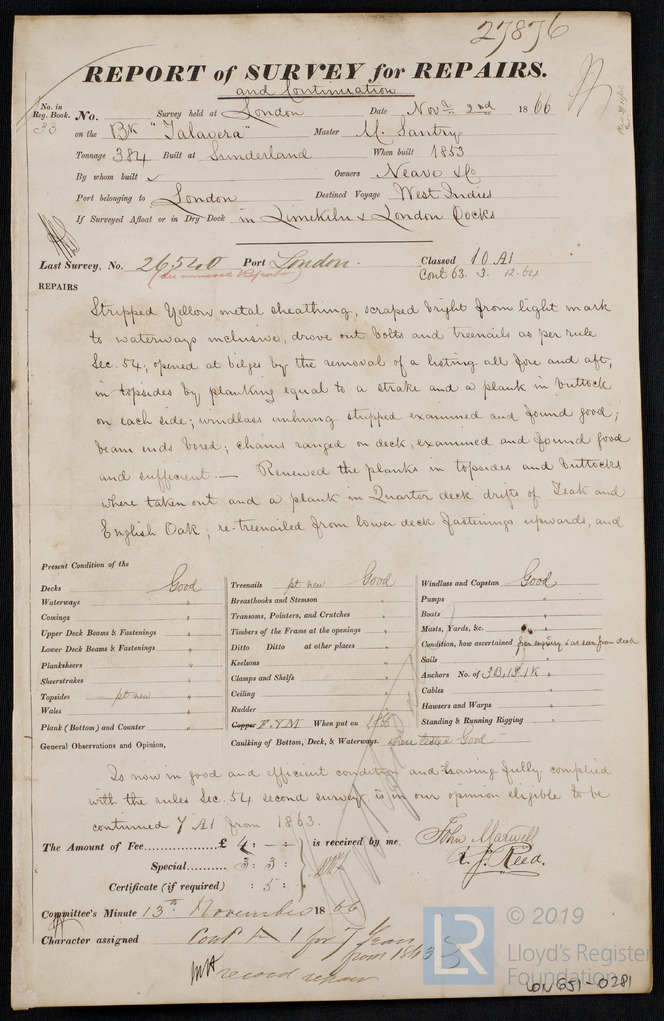 27876
REPORT of SURVEY for REPAIRS.
and Continuation
No. in Reg. Book. 30 No. Survey held at London Date Novr 2nd 1866
on the Bk "Talavera" Master M. Santry
Tonnage 384 Built at Sunderland When built 1853
By whom built Owners Neave & Co
Port belonging to London Destined Voyage West Indies
If Surveyed Afloat or in Dry Dock in Limekiln & London Docks
Last Survey, No. 26540 Port London. Classed 10 A1
(See annexed Report) Cont 63. 3. 12.64
REPAIRS
Stripped Yellow metal sheathing, scraped bright from light mark
to waterways inclusive, drove out bolts and treenails as per rule
Sec. 54; opened at bilges by the removal of a listing all fore and aft,
in topsides by planking equal to a strake and a plank in buttock
on each side; windlass unhung stripped examined and found good;
beam ends bored; chains ranged on deck, examined and found good
and sufficient. — Renewed the planks in topsides and buttocks
where taken out and a plank in Quarter deck drifts of Teak and
English Oak; re-treenailed from lower deck fastenings upwards, and
Present Condition of the
Decks Good Treenails pt new Good Windlass and Capstan Good
Waterways " Breasthooks and Stemson " Pumps "
Comings " Transoms, Pointers, and Crutches " Boats "
Upper Deck Beams & Fastenings " Timbers of the Frame at the openings " Masts, Yards, &c. "
Lower Deck Beams & Fastenings " Ditto Ditto at other places " Condition, how ascertained from enquiry & as seen from deck
Planksheers " Keelsons " Sails "
Sheerstrakes " Clamps and Shelfs " Anchors No. of 3B, 1S, 1K "
Topsides pt new " Ceiling " Cables "
Wales " Rudder " Hawsers and Warps "
Plank (Bottom) and Counter " Copper F.Y.M When put on 1866 Standing & Running Rigging "
General Observations and Opinion, Caulking of Bottom, Deck, & Waterways. where tested Good
Is now in good and efficient condition and having fully complied
with the rules Sec. 54 second survey, is in our opinion eligible to be
continued 7 A1 from 1863.
The Amount of Fee £ 4 : - : - is received by me, John Maxwell
Special 3 : 3 : L. J. Reed.
Certificate (if required) : 5 :
Committee's Minute 13th November 1866
Character assigned Cont A 1 for 7 Years
from 1863
record repair
LR © 2019
Lloyd's Register
Foundation
LON 651-0281